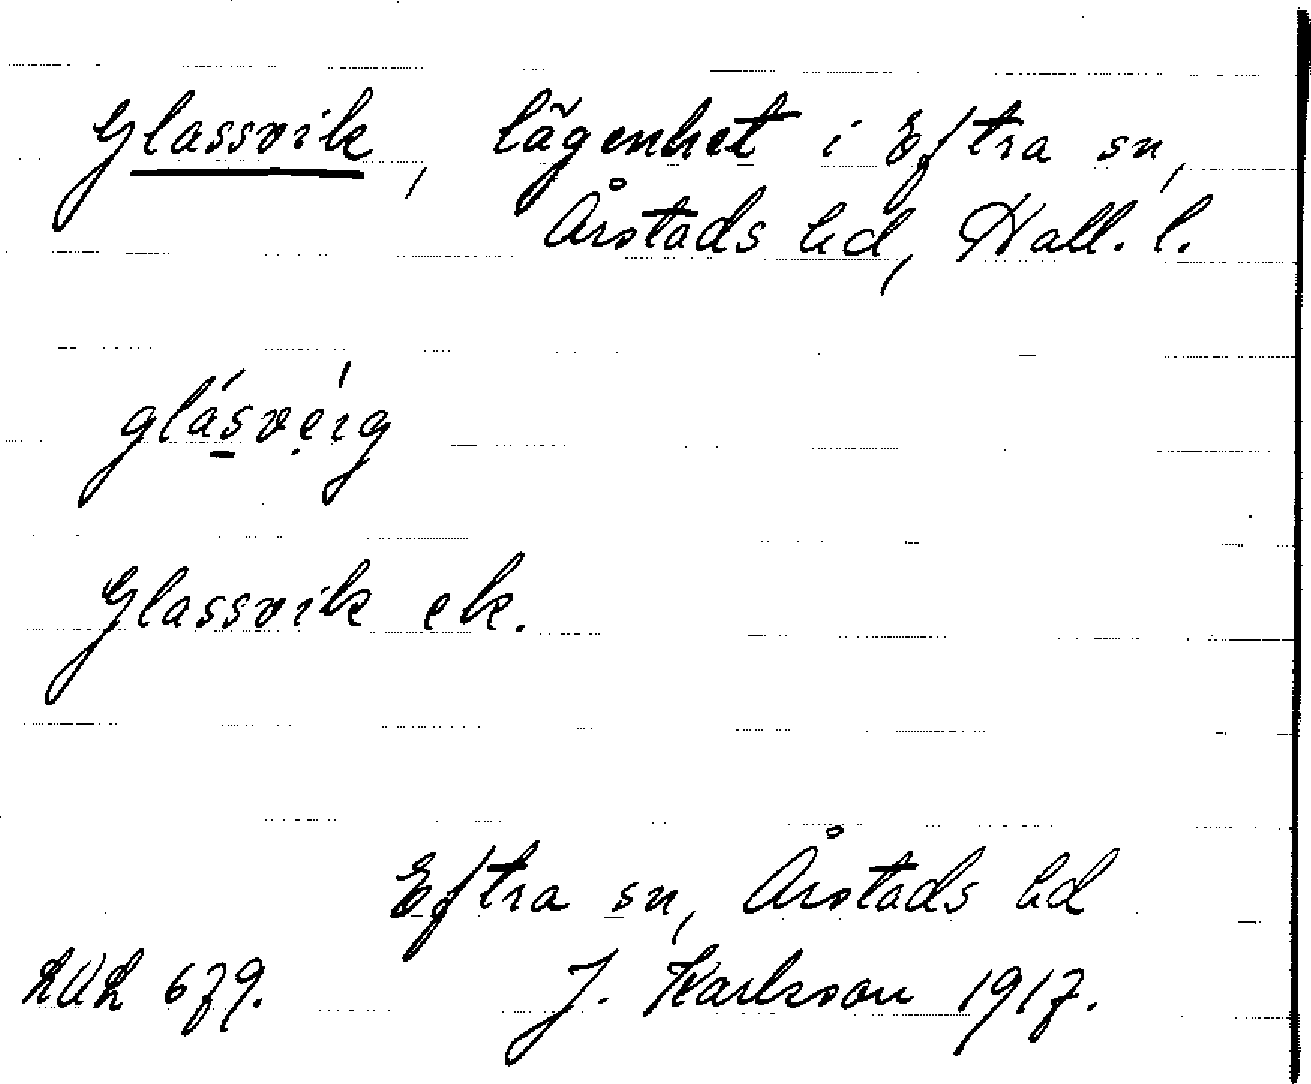 Glassvik, lägenhet i Eftra sn,
Årstads hd, Hall. l.
glásvẹíg
Glassvik ek.
Eftra sn, Årstads hd
LUL 679. J. Karlsson 1917.